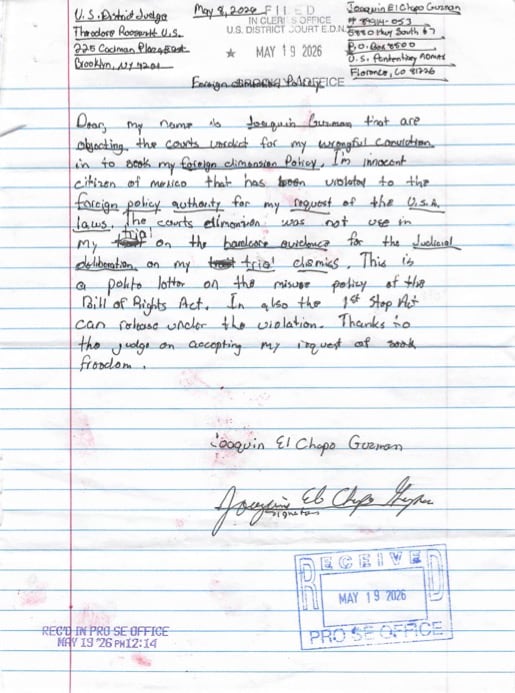 U.S. District Judge
Theodore Roosevelt U.S.
225 Cadman Plaza East
Brooklyn, NY
May 8, 2026
FILED
IN CLERK'S OFFICE
U.S. DISTRICT COURT E.D.N.Y.
★ MAY 19 2026
OFFICE
Joaquin El Chapo Guzman
# 89914-053
5880 Hwy South 67
P.O. Box 8500
U.S. Penitentiary
Florence, CO 81226
Foreign Policy
Dear, my name is Joaquin Guzman that are
objecting the courts verdict for my wrongful conviction
in to seek my foreign dimension Policy. I'm innocent
citizen of mexico that has been violated to the
foreign policy authority for my request of the U.S.A.
laws. The courts was not use in
my trial on the hardcore evidence for the Judicial
deliberation on my trial dismiss. This is
a polite letter on the misuse policy of the
Bill of Rights Act. In also the 1st Step Act
can release under the violation. Thanks to
the judge on accepting my request of seek
freedom.
Joaquin El Chapo Guzman
Joaquin El Chapo Guzman
signature
RECEIVED
MAY 19 2026
PRO SE OFFICE
REC'D IN PRO SE OFFICE
MAY 19 '26 PM12:14